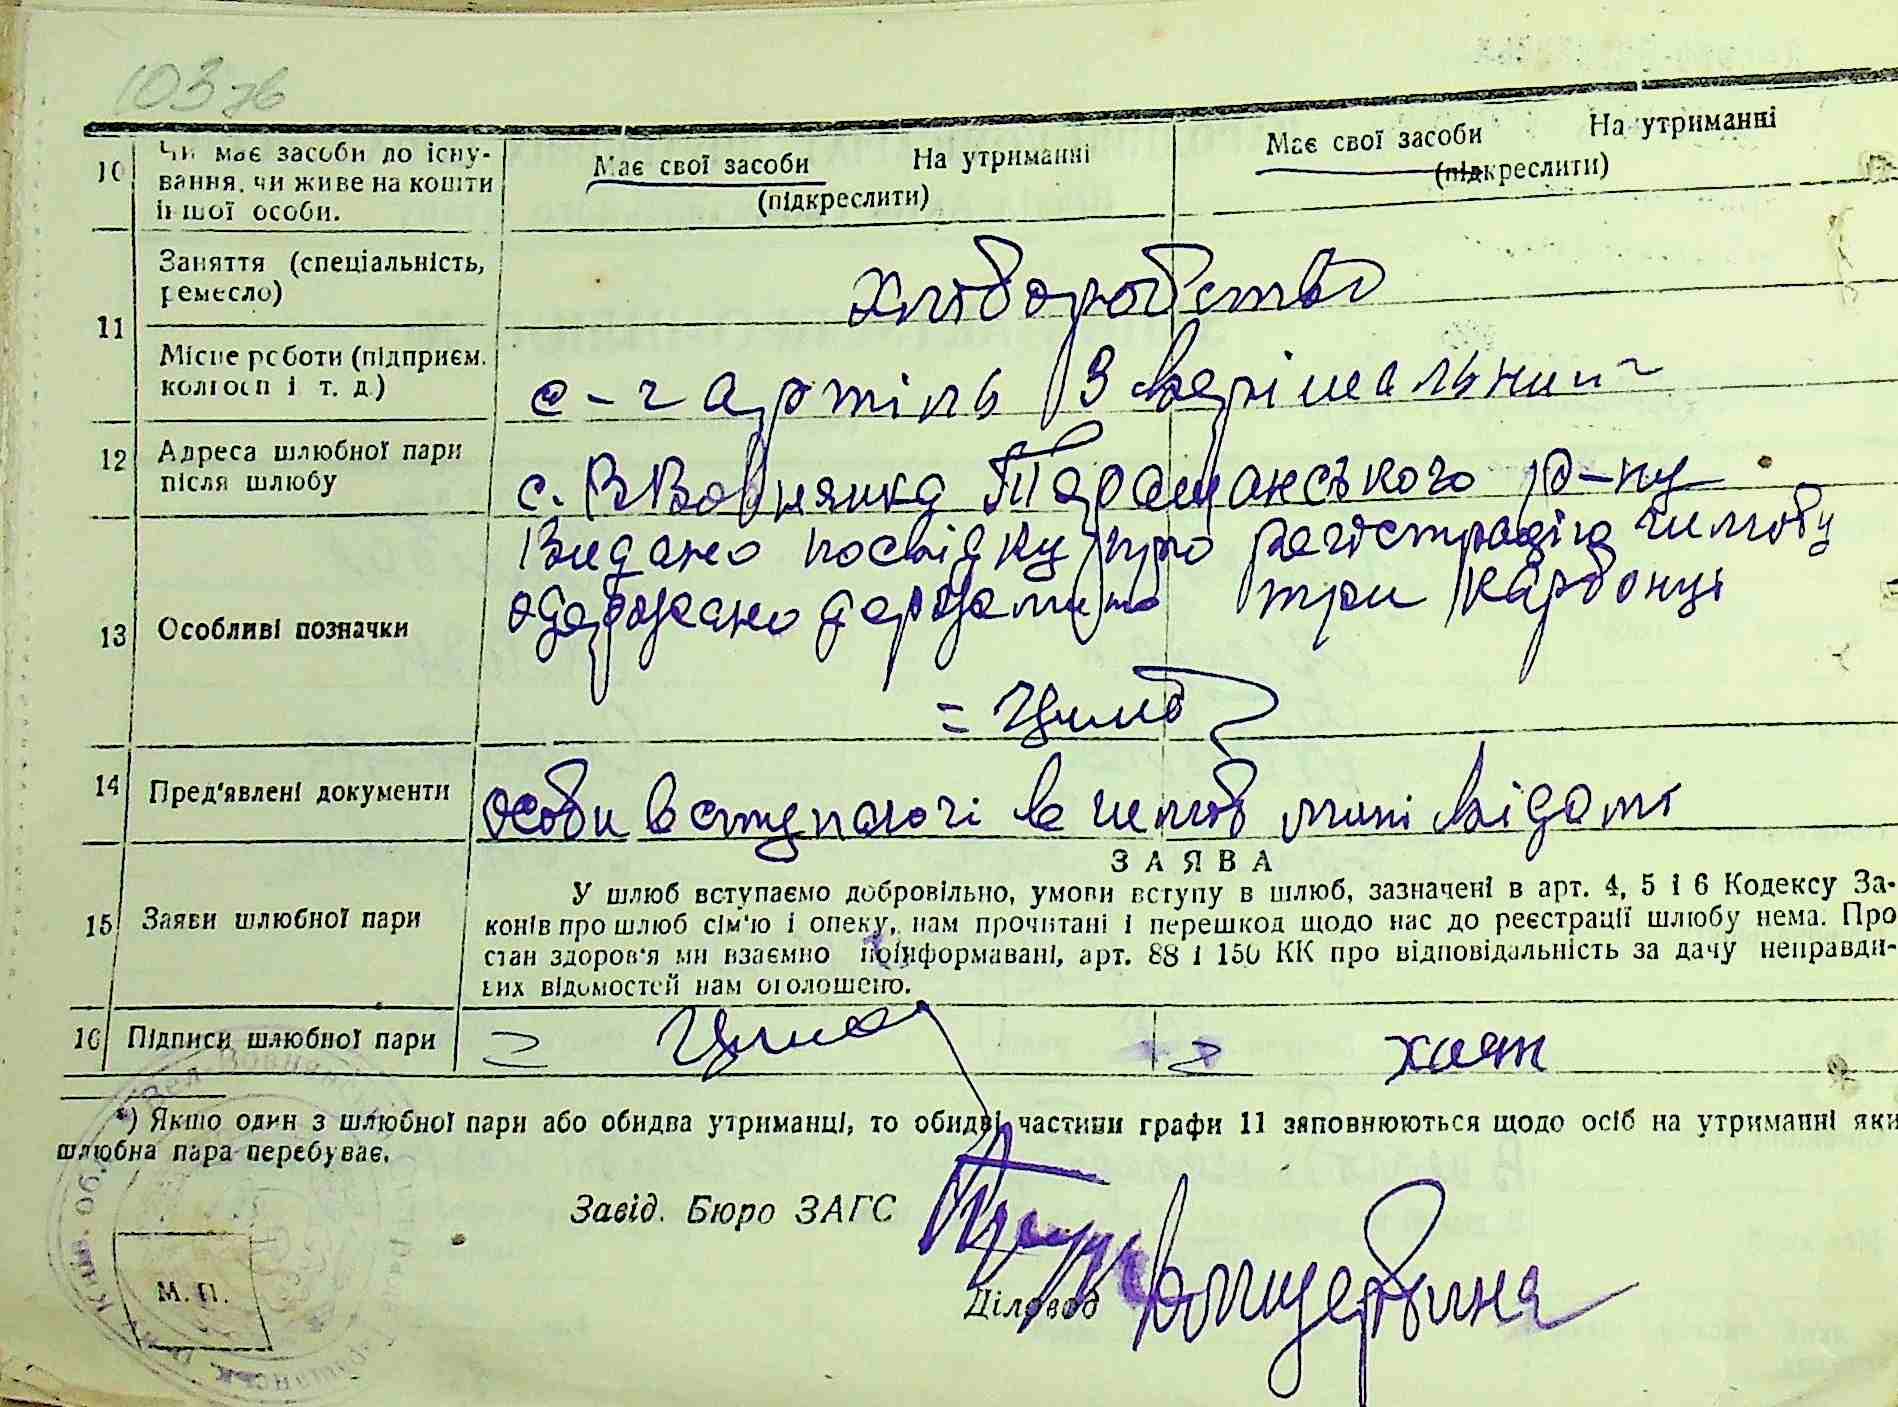 103 зв
10 Чи має засоби до існу-
вання, чи живе на кошти
іншої особи.
Має свої засоби На утриманні
(підкреслити)
Має свої засоби На утриманні
(підкреслити)
11 Заняття (спеціальність,
ремесло)
хліборобство
Місце роботи (підприєм.
колгосп і т. д.)
с-г артіль
12 Адреса шлюбної пари
після шлюбу
с. ВВовнянка Таращанського р-ну
13 Особливі позначки
Видано посвідку про регістрацію шлюбу
одержано три карбонці
14 Пред'явлені документи
особи вступаючі в шлюб мині відомі
ЗАЯВА
15 Заяви шлюбної пари
У шлюб вступаємо добровільно, умови вступу в шлюб, зазначені в арт. 4, 5 і 6 Кодексу За-
конів про шлюб сім'ю і опеку, нам прочитані і перешкод щодо нас до реєстрації шлюбу нема. Про
стан здоров'я ми взаємно поінформавані, арт. 88 і 150 КК про відповідальність за дачу неправди-
вих відомостей нам оголошено.
16 Підписи шлюбної пари
*) Якшо один з шлюбної пари або обидва утриманці, то обидві частини графи 11 заповнюються щодо осіб на утриманні яки
шлюбна пара перебуває.
Завід. Бюро ЗАГС
М. П.
Діловод